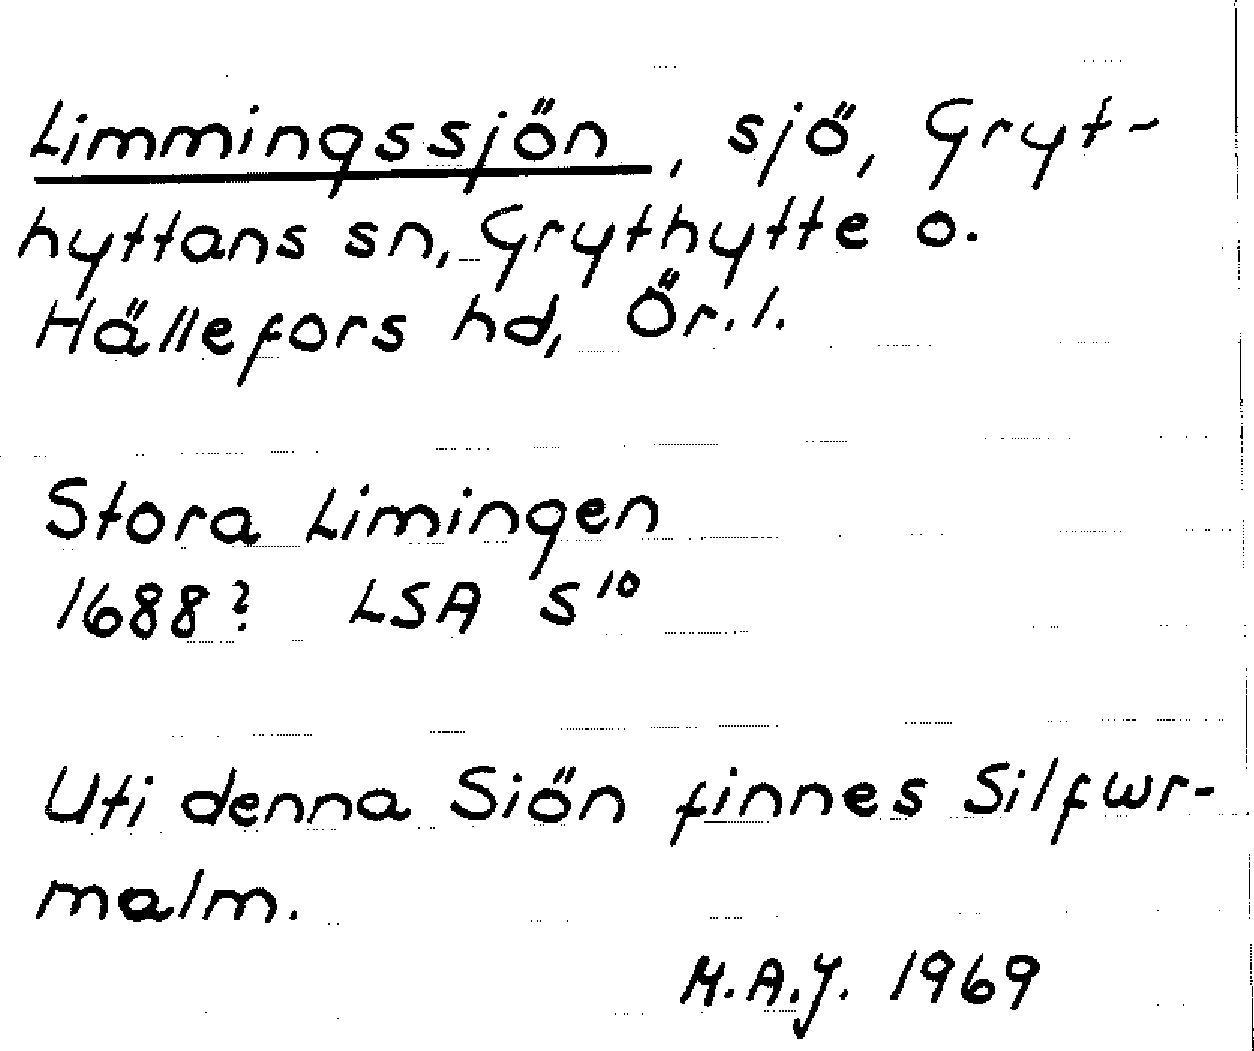 Limmingssjön, sjö, Gryt-
hyttans sn, Grythytte o.
Hällefors hd, Ör. l.
Stora Limingen
1688? LSA S¹⁰
Uti denna Siön finnes Silfwr-
malm.
M.A.J. 1969